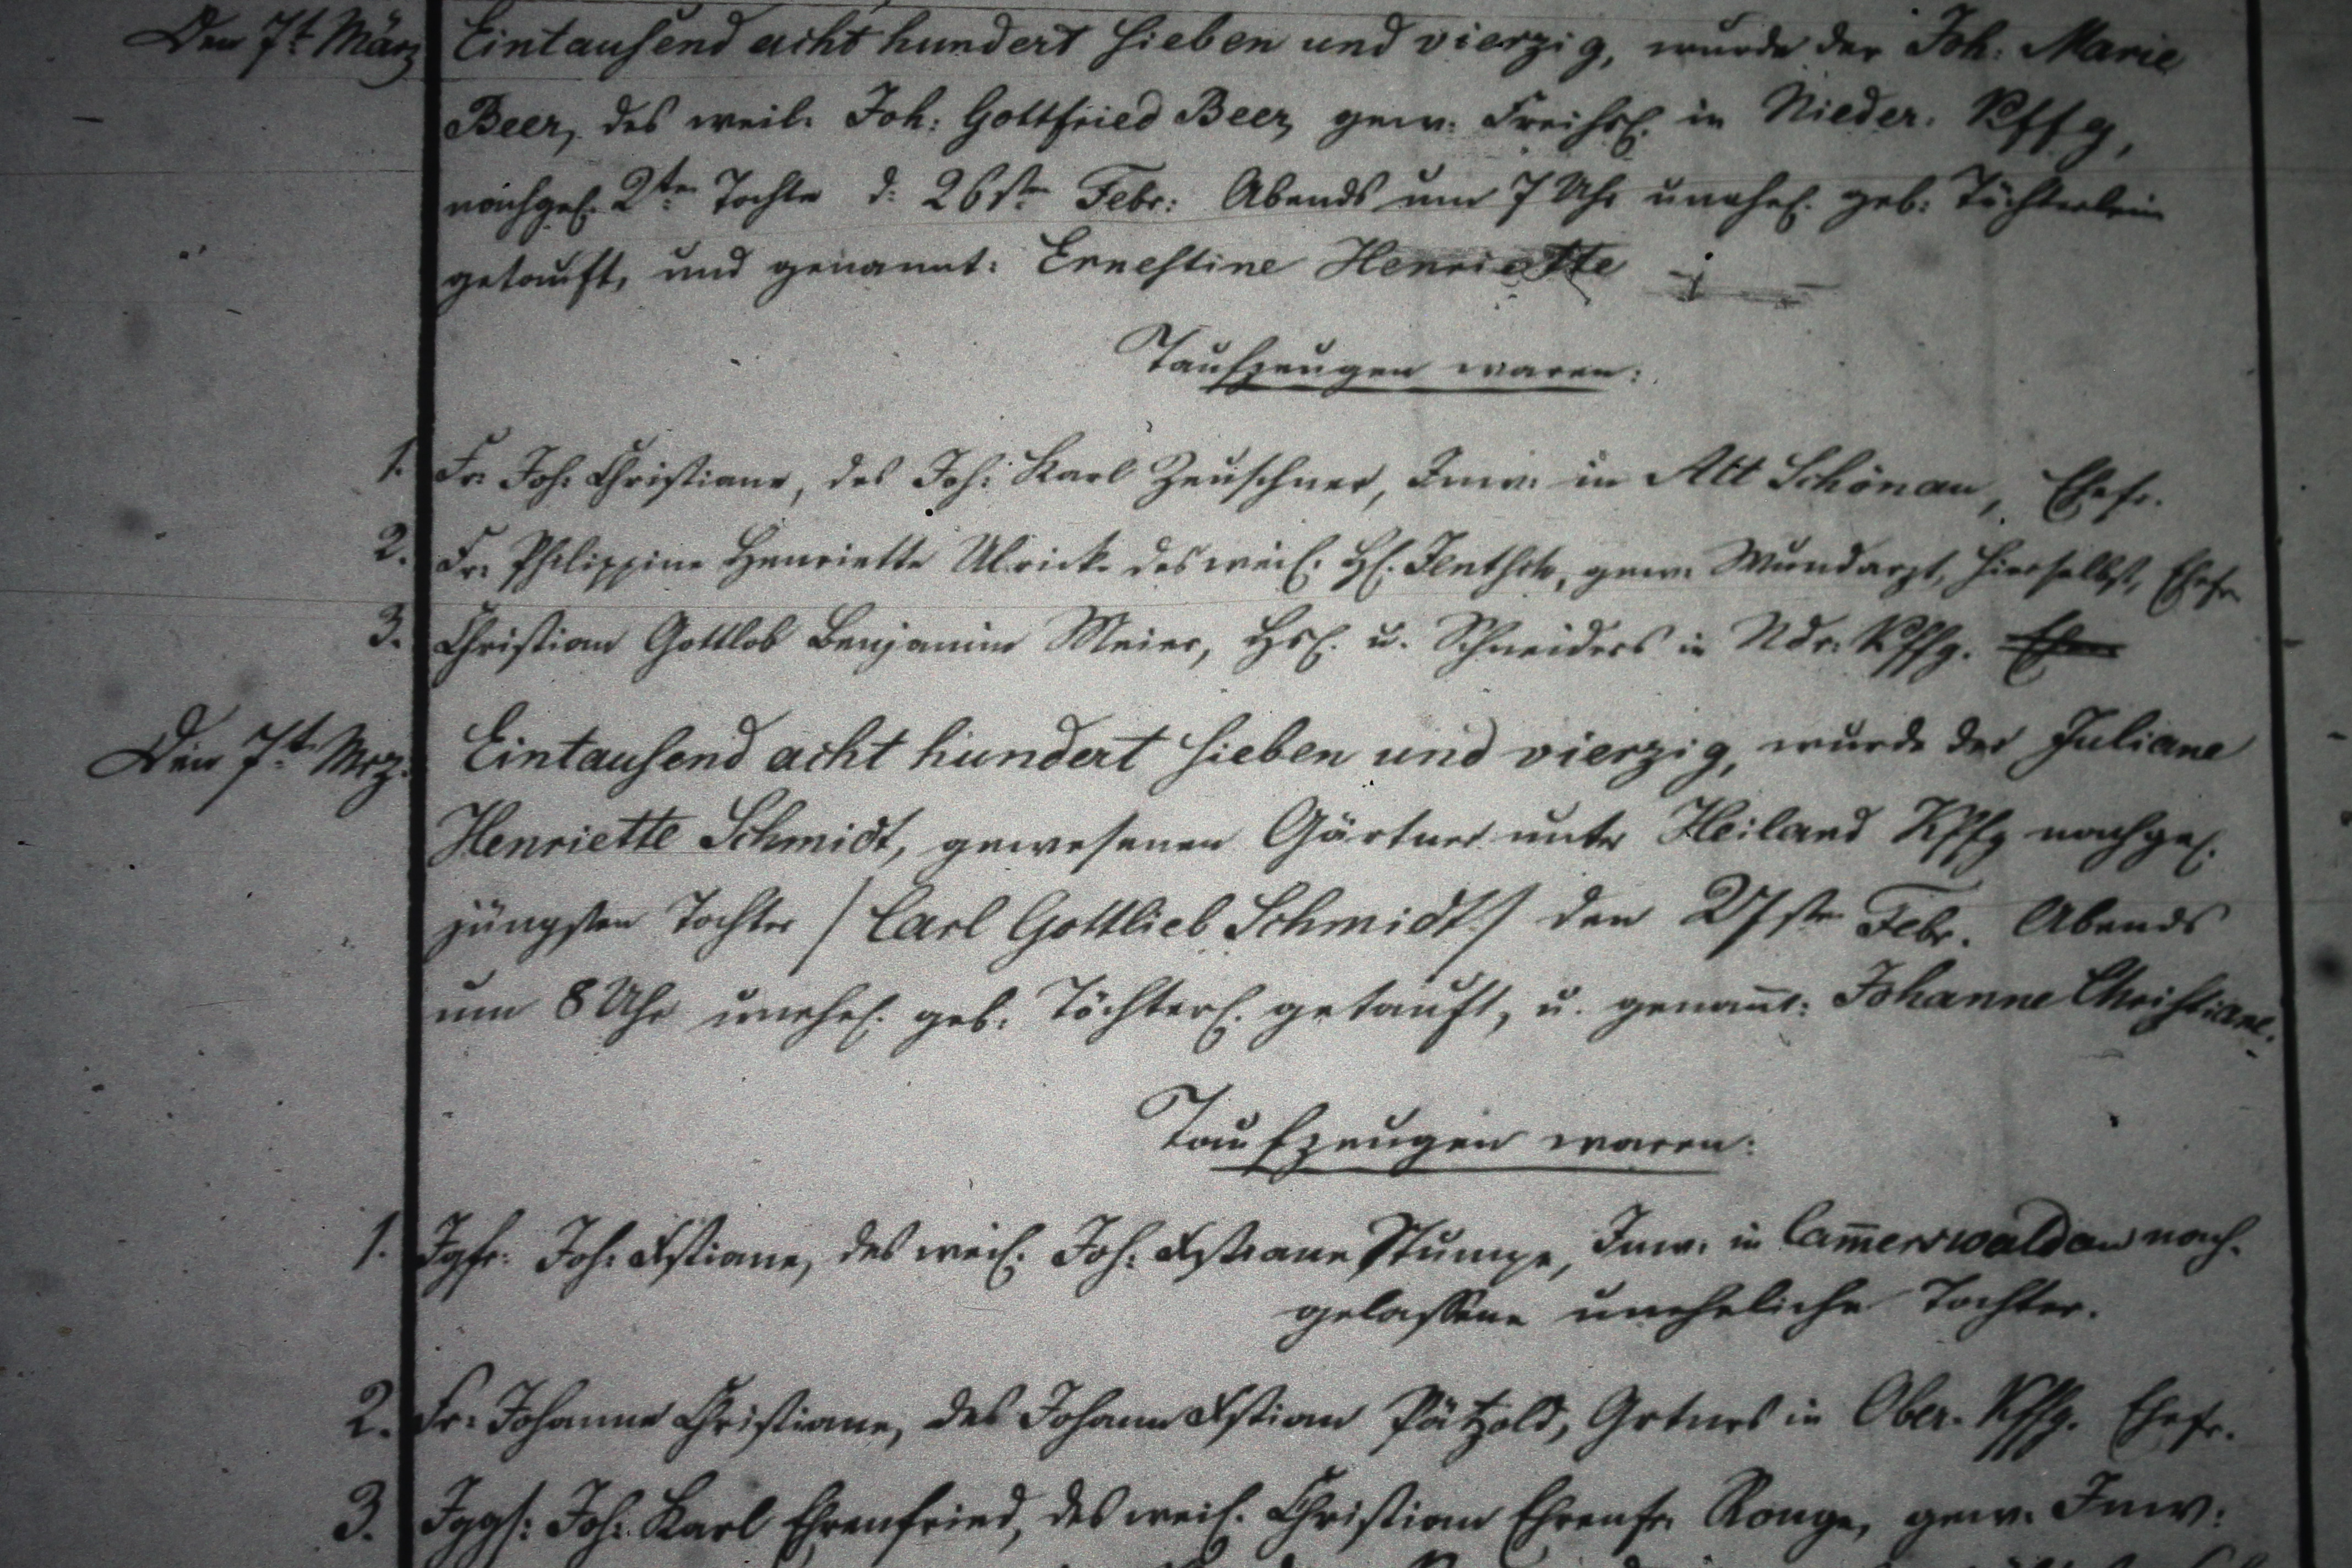 Den 7t März Eintausend acht hundert sieben und vierzig, wurde der Joh: Marie
Beer, des weil. Joh: Gottfried Beer, gew. Freihsl. in Nieder. Kffg,
nachgel. 2te Tochter d: 26ste Febr: Abends um 7 Uhr unehel. geb. Töchterlein
getauft, und genannt: Ernestine Henriette
Taufzeugen waren:
1. Fr. Joh: Christiane, des Joh: Karl Zeuschner, Inw. in Alt Schönau, Ehefr.
2. Fr. Philippine Henriette Ulricke des weil. H. Jentsch, gew. Wundarzt, hierselbst, Ehefr
3. Christian Gottlob Benjamin Meier, Hsl. u. Schneiders in Ndr. Kffg.
Den 7t Mrz. Eintausend acht hundert sieben und vierzig, wurde der Juliane
Henriette Schmidt, gewesenen Gärtner unter Heiland Kffg nachgel.
jüngsten Tochter / Carl Gottlieb Schmidt / den 27ste Febr. Abends
um 8 Uhr unehel. geb. Töchterl. getauft, u. genant: Johanne Christiane.
Taufzeugen waren:
1. Jgfr. Joh: Xstiane, des weil. Joh: Xstiane Stumpe, Inw. in Camerswaldau nach-
gelassene uneheliche Tochter.
2. Fr. Johanne Christiane, des Johann Xstian Pätzold, Grtners in Ober-Kffg. Ehefr.
3. Jggs: Joh: Karl Ehrenfried, des weil. Christian Ehrenfr. Konge, gew. Inw: